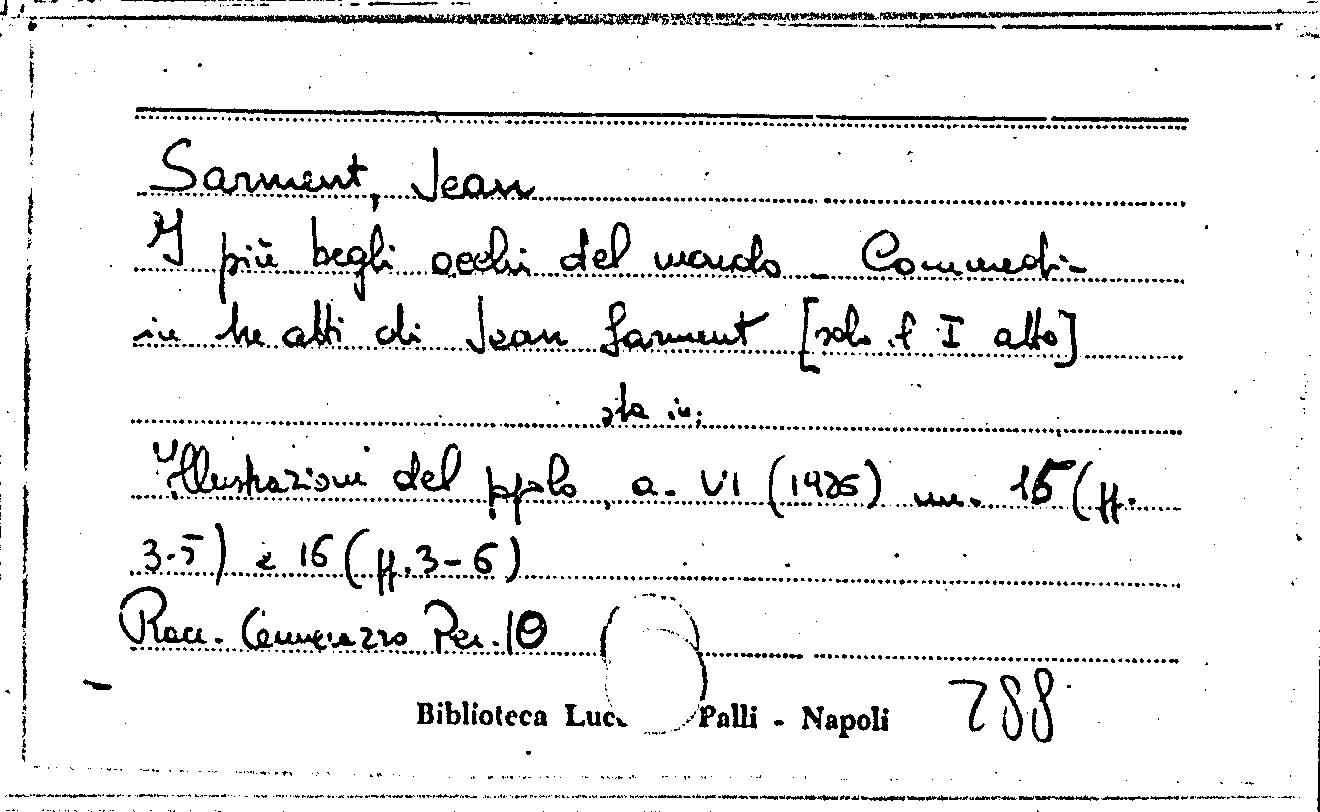 Sarment, Jean
I più begli occhi del mondo - Commedi-
in tre atti di Jean Sarment [solo il I atto]
sta in:
Illustrazioni del ppolo, a. VI (1925) nn. 15 (pp.
3-5) e 16 (pp. 3-6)
Racc. Per. 10
Biblioteca Luc Palli - Napoli 288